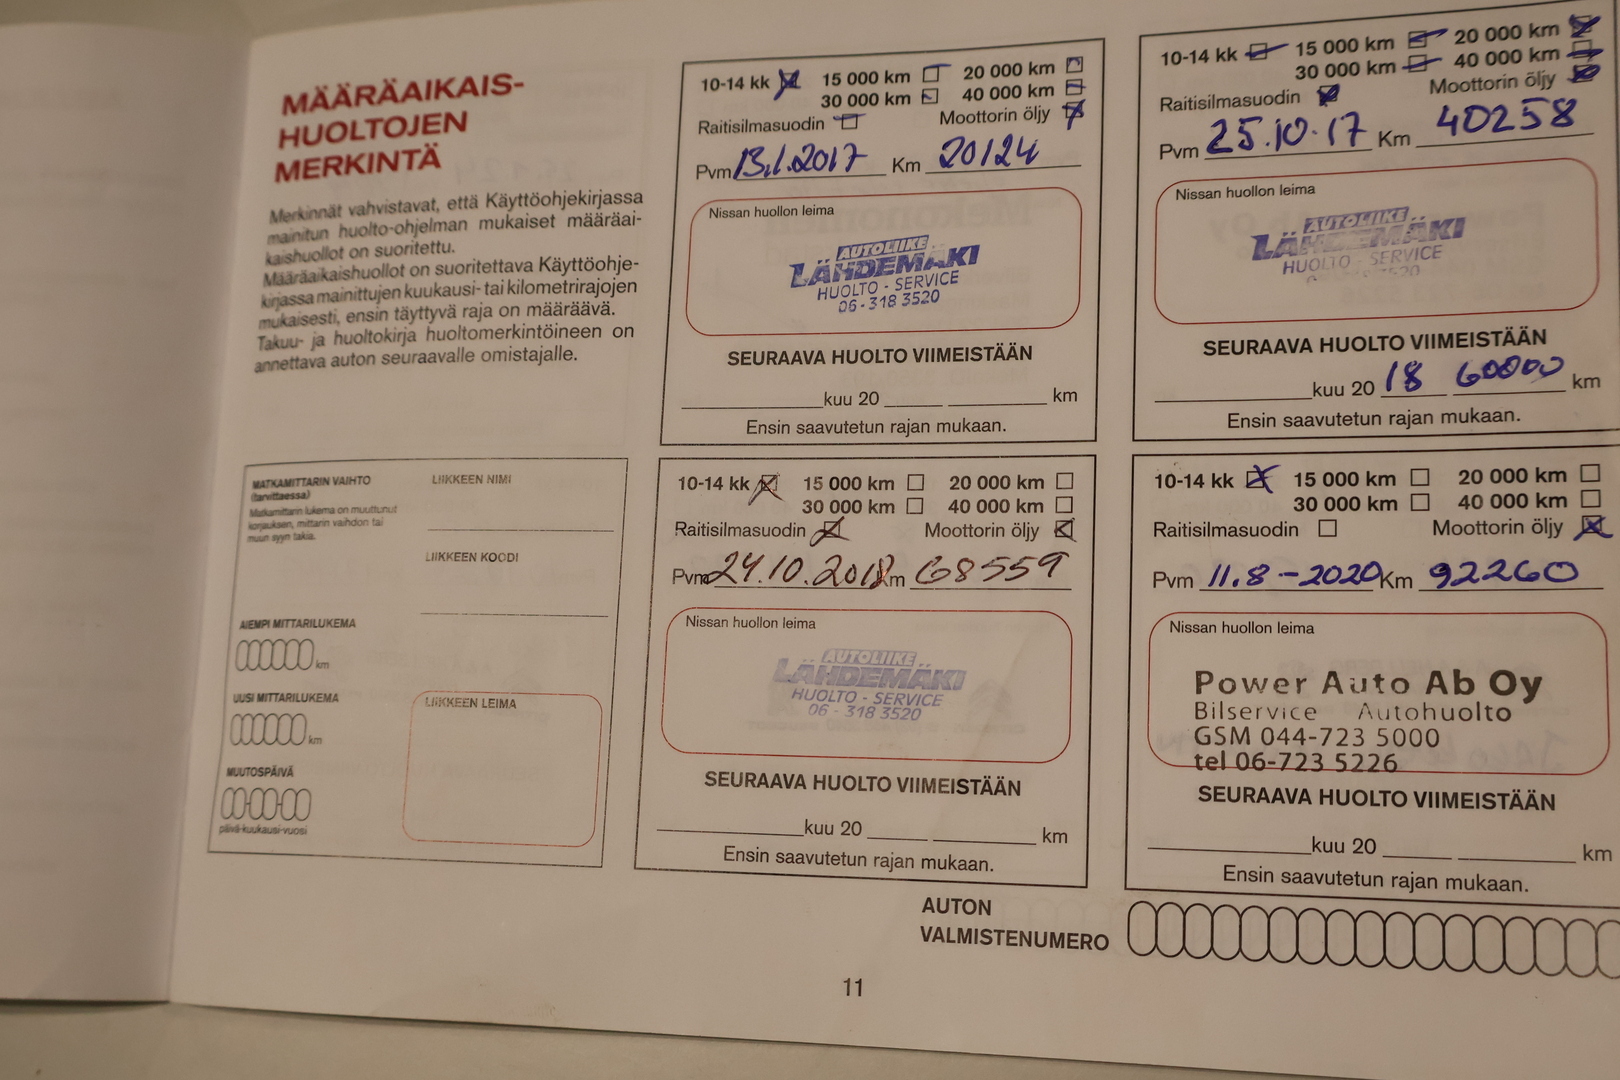 MÄÄRÄAIKAIS-
HUOLTOJEN
MERKINTÄ
Merkinnät vahvistavat, että Käyttöohjekirjassa
mainitun huolto-ohjelman mukaiset määräai-
kaishuollot on suoritettu.
Määräaikaishuollot on suoritettava Käyttöohje-
kirjassa mainittujen kuukausi- tai kilometrirajojen
mukaisesti, ensin täyttyvä raja on määräävä.
Takuu- ja huoltokirja huoltomerkintöineen on
annettava auton seuraavalle omistajalle.
10-14 kk 15 000 km 20 000 km
30 000 km 40 000 km
Raitisilmasuodin Moottorin öljy
Pvm 13.1.2017 Km 20124
Nissan huollon leima
AUTOLIIKE
LÄHDEMÄKI
HUOLTO - SERVICE
06 - 318 3520
SEURAAVA HUOLTO VIIMEISTÄÄN
kuu 20 km
Ensin saavutetun rajan mukaan.
10-14 kk 15 000 km 20 000 km
30 000 km 40 000 km
Raitisilmasuodin Moottorin öljy
Pvm 25.10.17 Km 40258
Nissan huollon leima
AUTOLIIKE
LÄHDEMÄKI
HUOLTO - SERVICE
SEURAAVA HUOLTO VIIMEISTÄÄN
kuu 20 18 60000 km
Ensin saavutetun rajan mukaan.
MATKAMITTARIN VAIHTO
(tarvittaessa)
Matkamittarin lukema on muuttunut
korjauksen, mittarin vaihdon tai
muun syyn takia.
LIIKKEEN NIMI
LIIKKEEN KOODI
AIEMPI MITTARILUKEMA
km
UUSI MITTARILUKEMA
km
MUUTOSPÄIVÄ
päivä-kuukausi-vuosi
LIIKKEEN LEIMA
10-14 kk 15 000 km 20 000 km
30 000 km 40 000 km
Raitisilmasuodin Moottorin öljy
Pvm 24.10.2018 Km 68559
Nissan huollon leima
AUTOLIIKE
LÄHDEMÄKI
HUOLTO - SERVICE
06 - 318 3520
SEURAAVA HUOLTO VIIMEISTÄÄN
kuu 20 km
Ensin saavutetun rajan mukaan.
10-14 kk 15 000 km 20 000 km
30 000 km 40 000 km
Raitisilmasuodin Moottorin öljy
Pvm 11.8-2020 Km 92260
Nissan huollon leima
Power Auto Ab Oy
Bilservice Autohuolto
GSM 044-723 5000
tel 06-723 5226
SEURAAVA HUOLTO VIIMEISTÄÄN
kuu 20 km
Ensin saavutetun rajan mukaan.
AUTON
VALMISTENUMERO
11